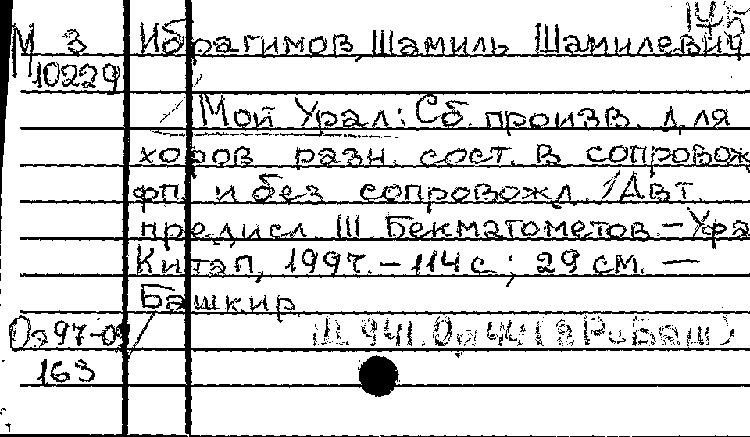 145
М 3 Ибрагимов, Шамиль Шамилевич
10229
Мой Урал: Сб. произв. для
хоров разн. сост. в сопровож
фп. и без сопровожд. / Авт.
предисл. Ш Бекматометов. - Уфа
Китап, 1997. - 114 с.; 29 см. —
Башкир
Оэ97-09 Щ 941.0
163